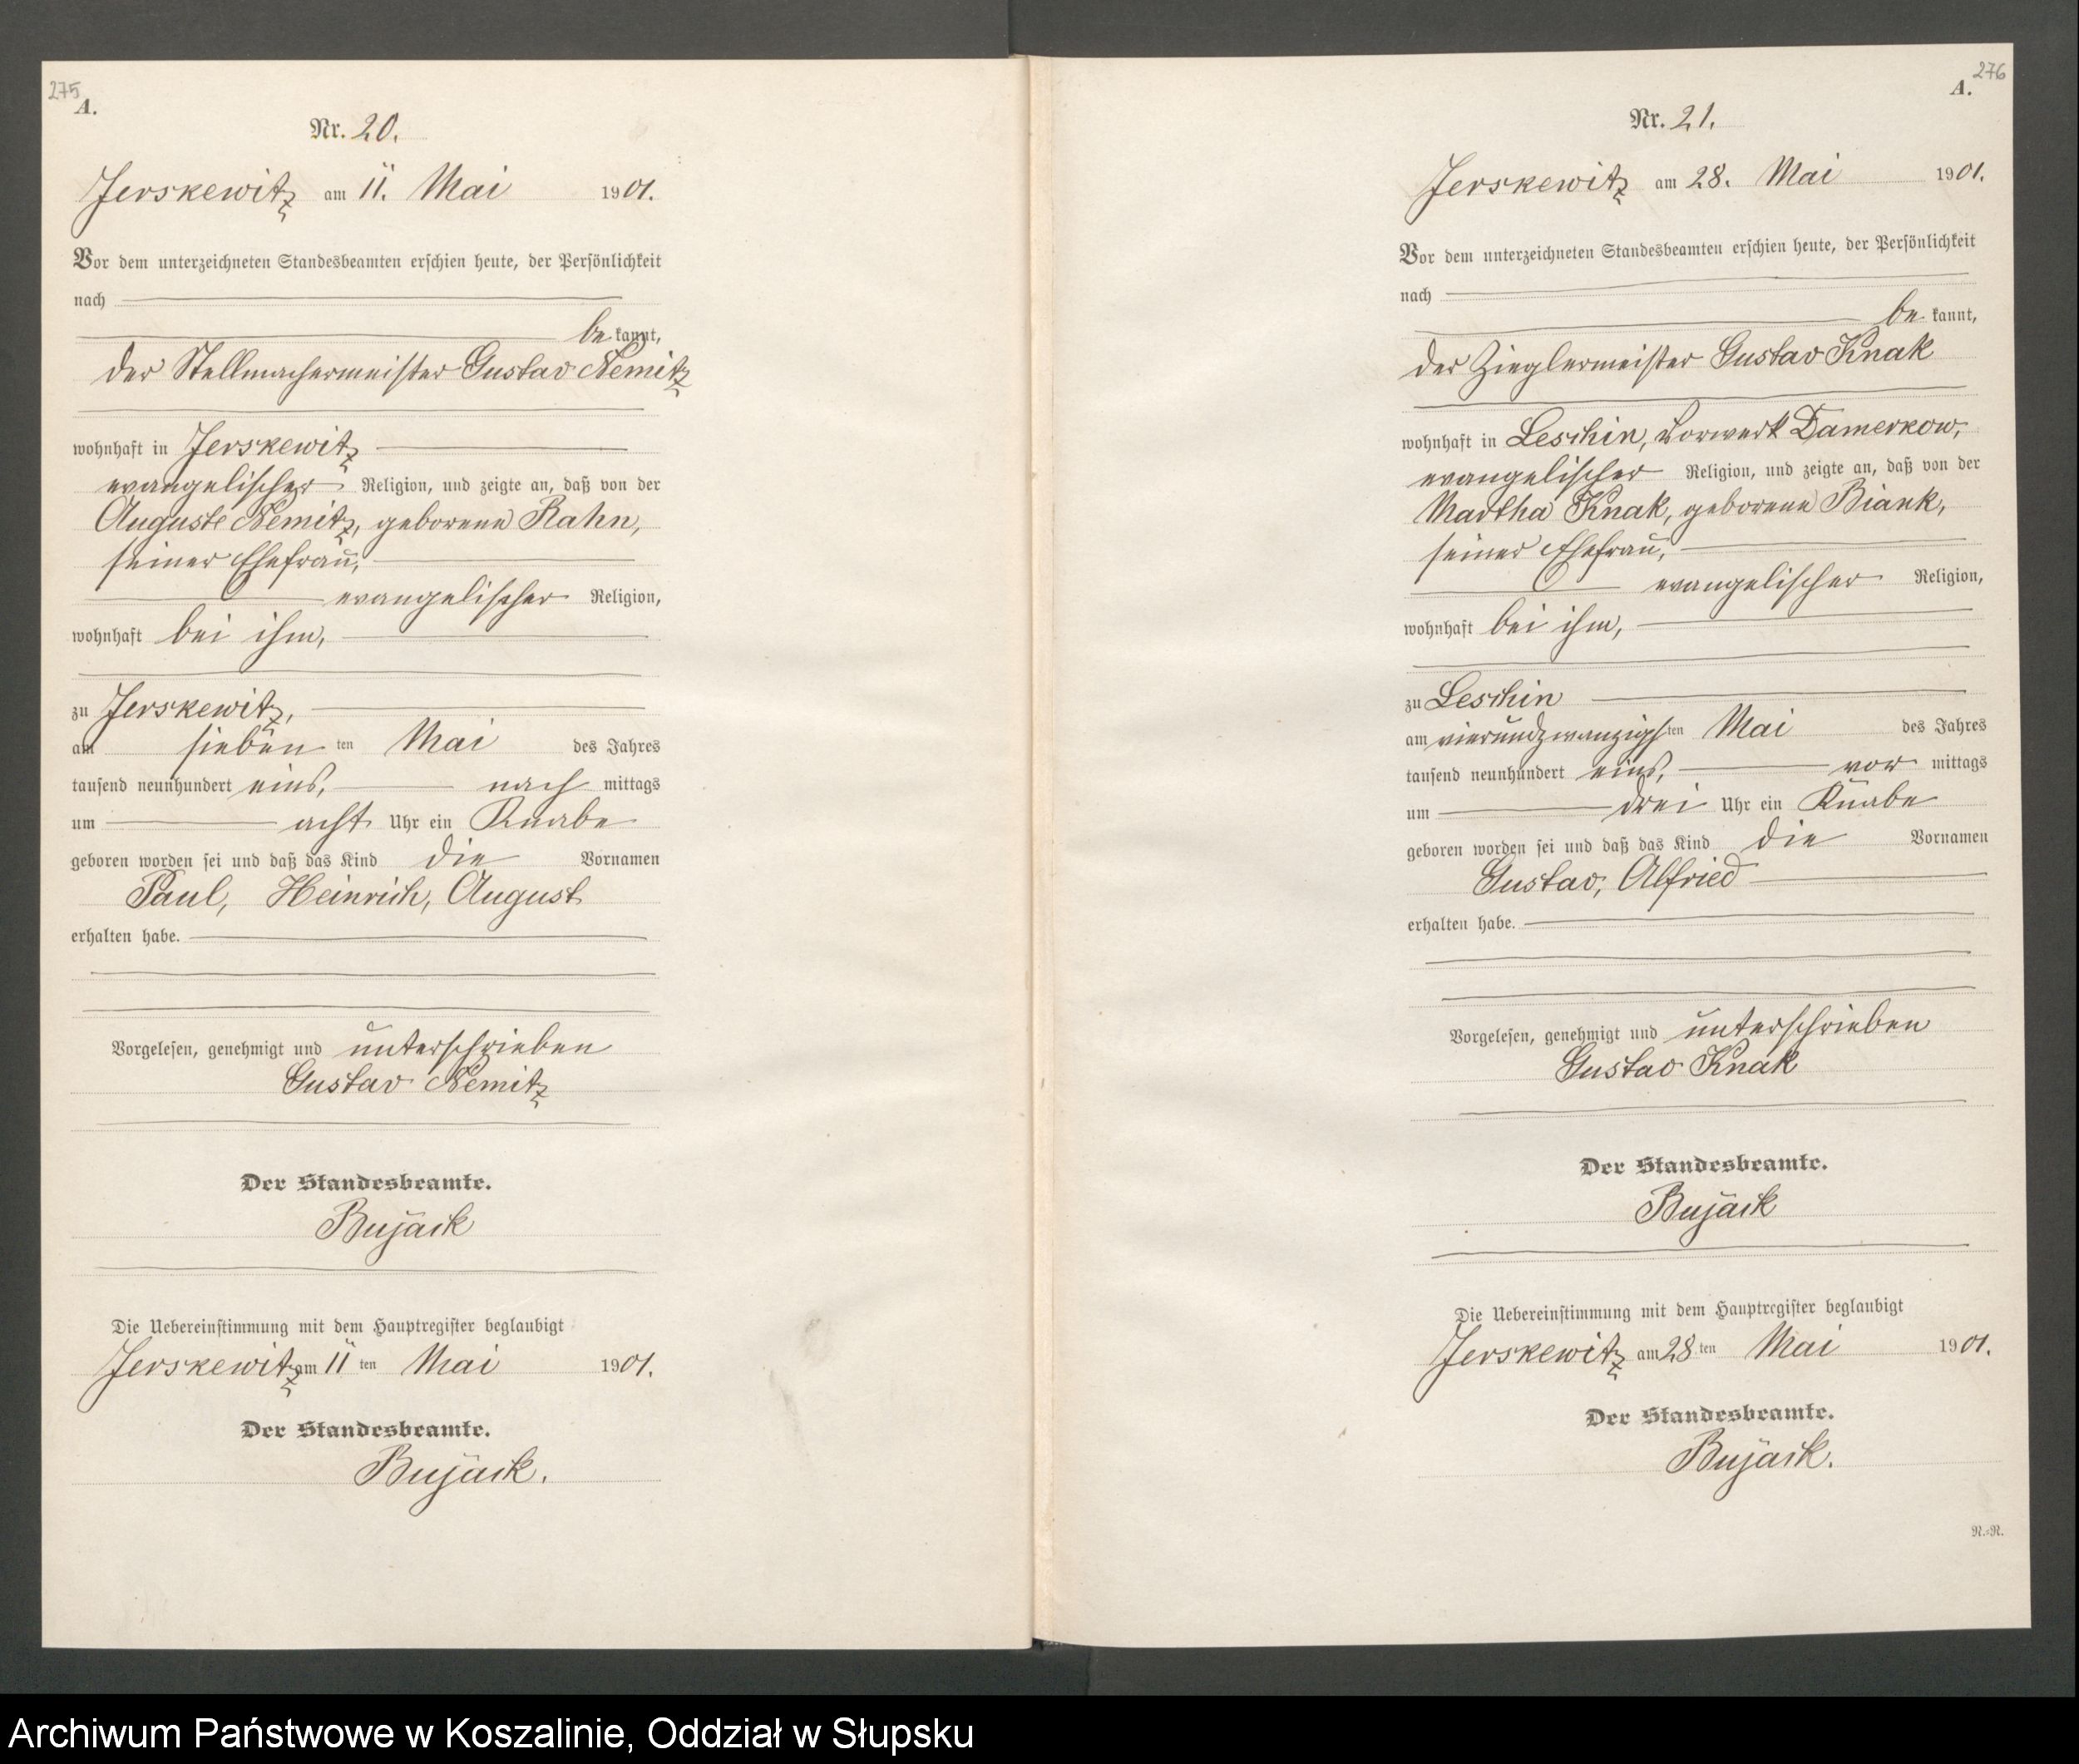 275
A.
Nr. 20.
Jerskewitz am 11. Mai 1901.
Vor dem unterzeichneten Standesbeamten erschien heute, der Persönlichkeit
nach
be kannt,
der Stellmachermeister Gustav Nemitz
wohnhaft in Jerskewitz
evangelischer Religion, und zeigte an, daß von der
Auguste Nemitz, geborene Rahn,
seiner Ehefrau,
evangelischer Religion,
wohnhaft bei ihm,
zu Jerskewitz,
am sieben ten Mai des Jahres
tausend neunhundert eins, nach mittags
um acht Uhr ein Knabe
geboren worden sei und daß das Kind die Vornamen
Paul, Heinrich, August
erhalten habe.
Vorgelesen, genehmigt und unterschrieben
Gustav Nemitz
Der Standesbeamte.
Bujack
Die Uebereinstimmung mit dem Hauptregister beglaubigt
Jerskewitz am 11 ten Mai 1901.
Der Standesbeamte.
Bujack.
276
A.
Nr. 21.
Jerskewitz am 28. Mai 1901.
Vor dem unterzeichneten Standesbeamten erschien heute, der Persönlichkeit
nach
be kannt,
der Zieglermeister Gustav Knak
wohnhaft in Leschin, Vorwerk Damerkow,
evangelischer Religion, und zeigte an, daß von der
Martha Knak, geborene Biank,
seiner Ehefrau,
evangelischer Religion,
wohnhaft bei ihm,
zu Leschin
am vierundzwanzigs ten Mai des Jahres
tausend neunhundert eins, vor mittags
um drei Uhr ein Knabe
geboren worden sei und daß das Kind die Vornamen
Gustav, Alfried
erhalten habe.
Vorgelesen, genehmigt und unterschrieben
Gustav Knak
Der Standesbeamte.
Bujack
Die Uebereinstimmung mit dem Hauptregister beglaubigt
Jerskewitz am 28 ten Mai 1901.
Der Standesbeamte.
Bujack.
N.-N.
Archiwum Państwowe w Koszalinie, Oddział w Słupsku